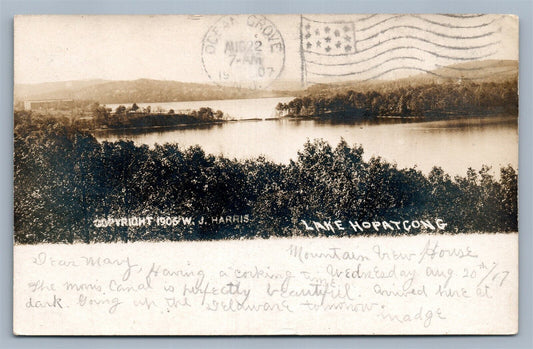 OCEAN GROVE
AUG 22
7-AM
1907
COPYRIGHT 1905 W. J. HARRIS
LAKE HOPATCONG
Mountain View House
Wednesday Aug 20th/07
Dear Mary, Having a corking time
The Morris Canal is perfectly beautiful. Arrived here at
dark. Going up the Delaware tomorrow.
Madge